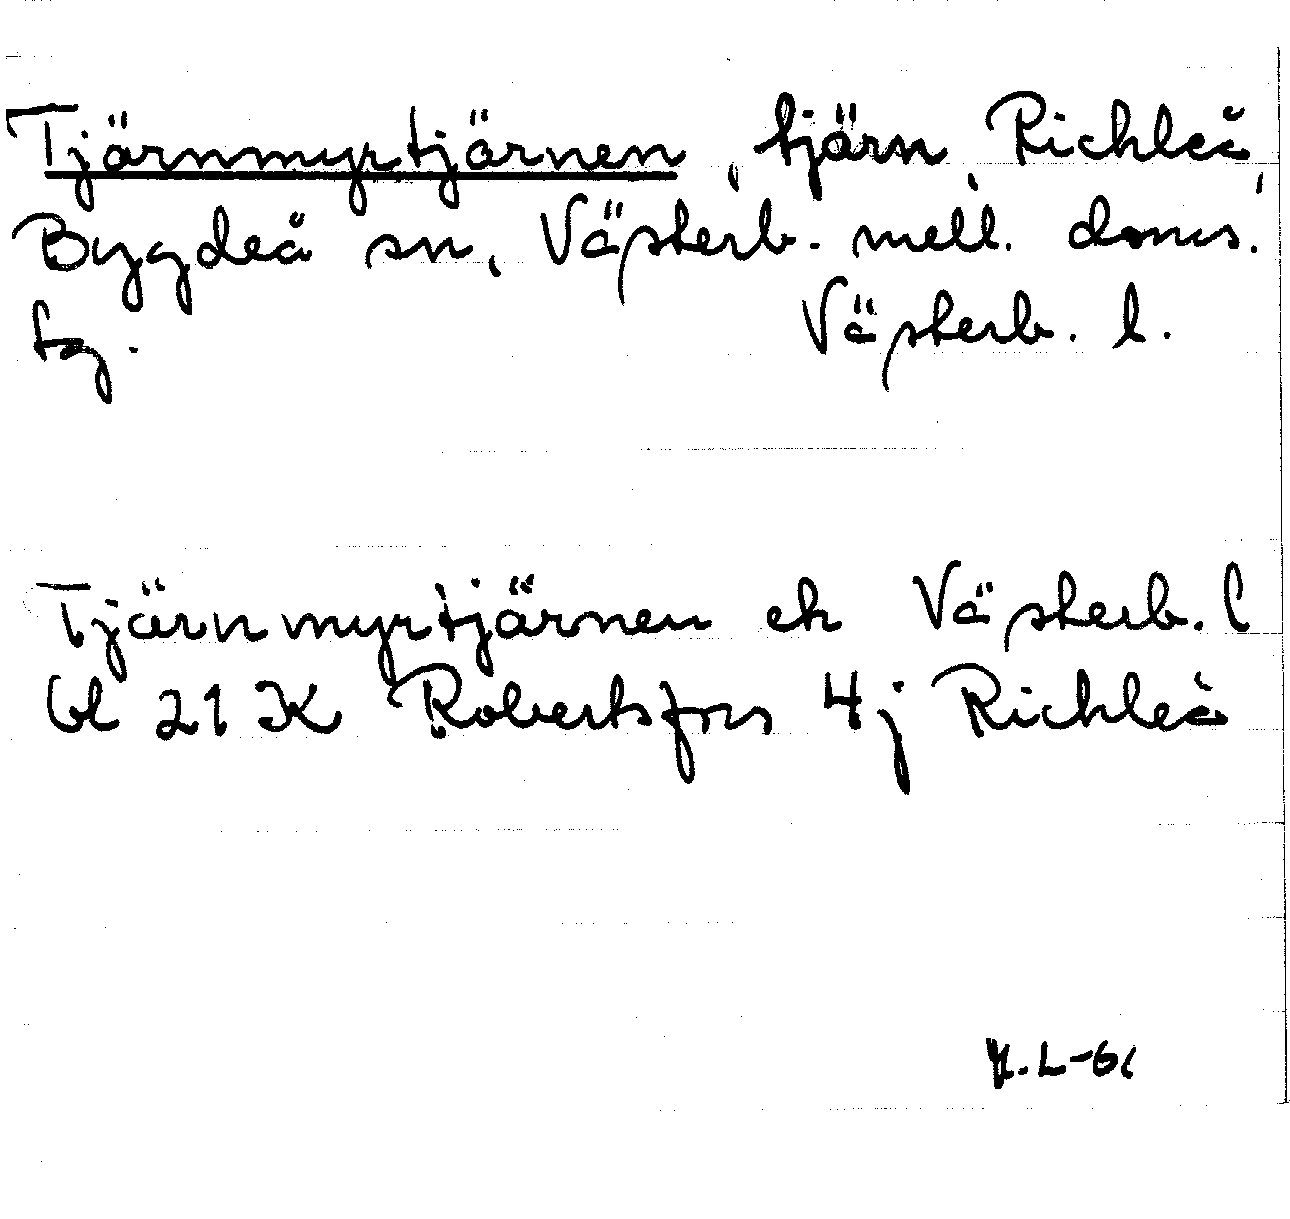 Tjärnmyrtjärnen, tjärn, Rickleå,
Bygdeå sn, Västerb. mell. doms.
tg. Västerb. l.
Tjärnmyrtjärnen ek Västerb. l
bl 21 K Robertsfors 4 j Rickleå